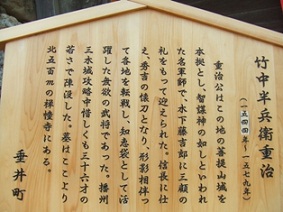 竹中半兵衛重治
(一五四四〜一五七九年)
重治公はこの地の菩提山城を
本拠とし、智謀神の如しといわれ
た名軍師で、木下藤吉郎に三顧の
礼をもって迎えられた。信長に仕
え、秀吉の懐刀となり、形影相伴っ
て各地を転戦し、知恵袋として活
躍した無欲の武将であった。播州
三木城攻略中惜しくも三十六才の
若さで陣没した。墓はここより
北五百mの禅幢寺にある。
垂井町